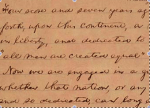 Four score and seven years a
forth, upon this continent, a n
in liberty, and dedicated to
all men are created equal"
Now we are engaged in a g
whether that nation, or any
and so dedicated, can long